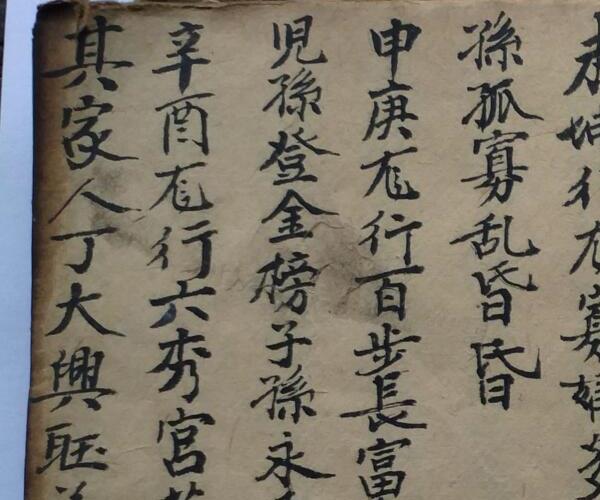 行龙寡婦
孫孤寡乱昏昏
申庚龙行百步長富
児孫登金榜子孫永
辛酉龙行六秀宮
其家人丁大興旺